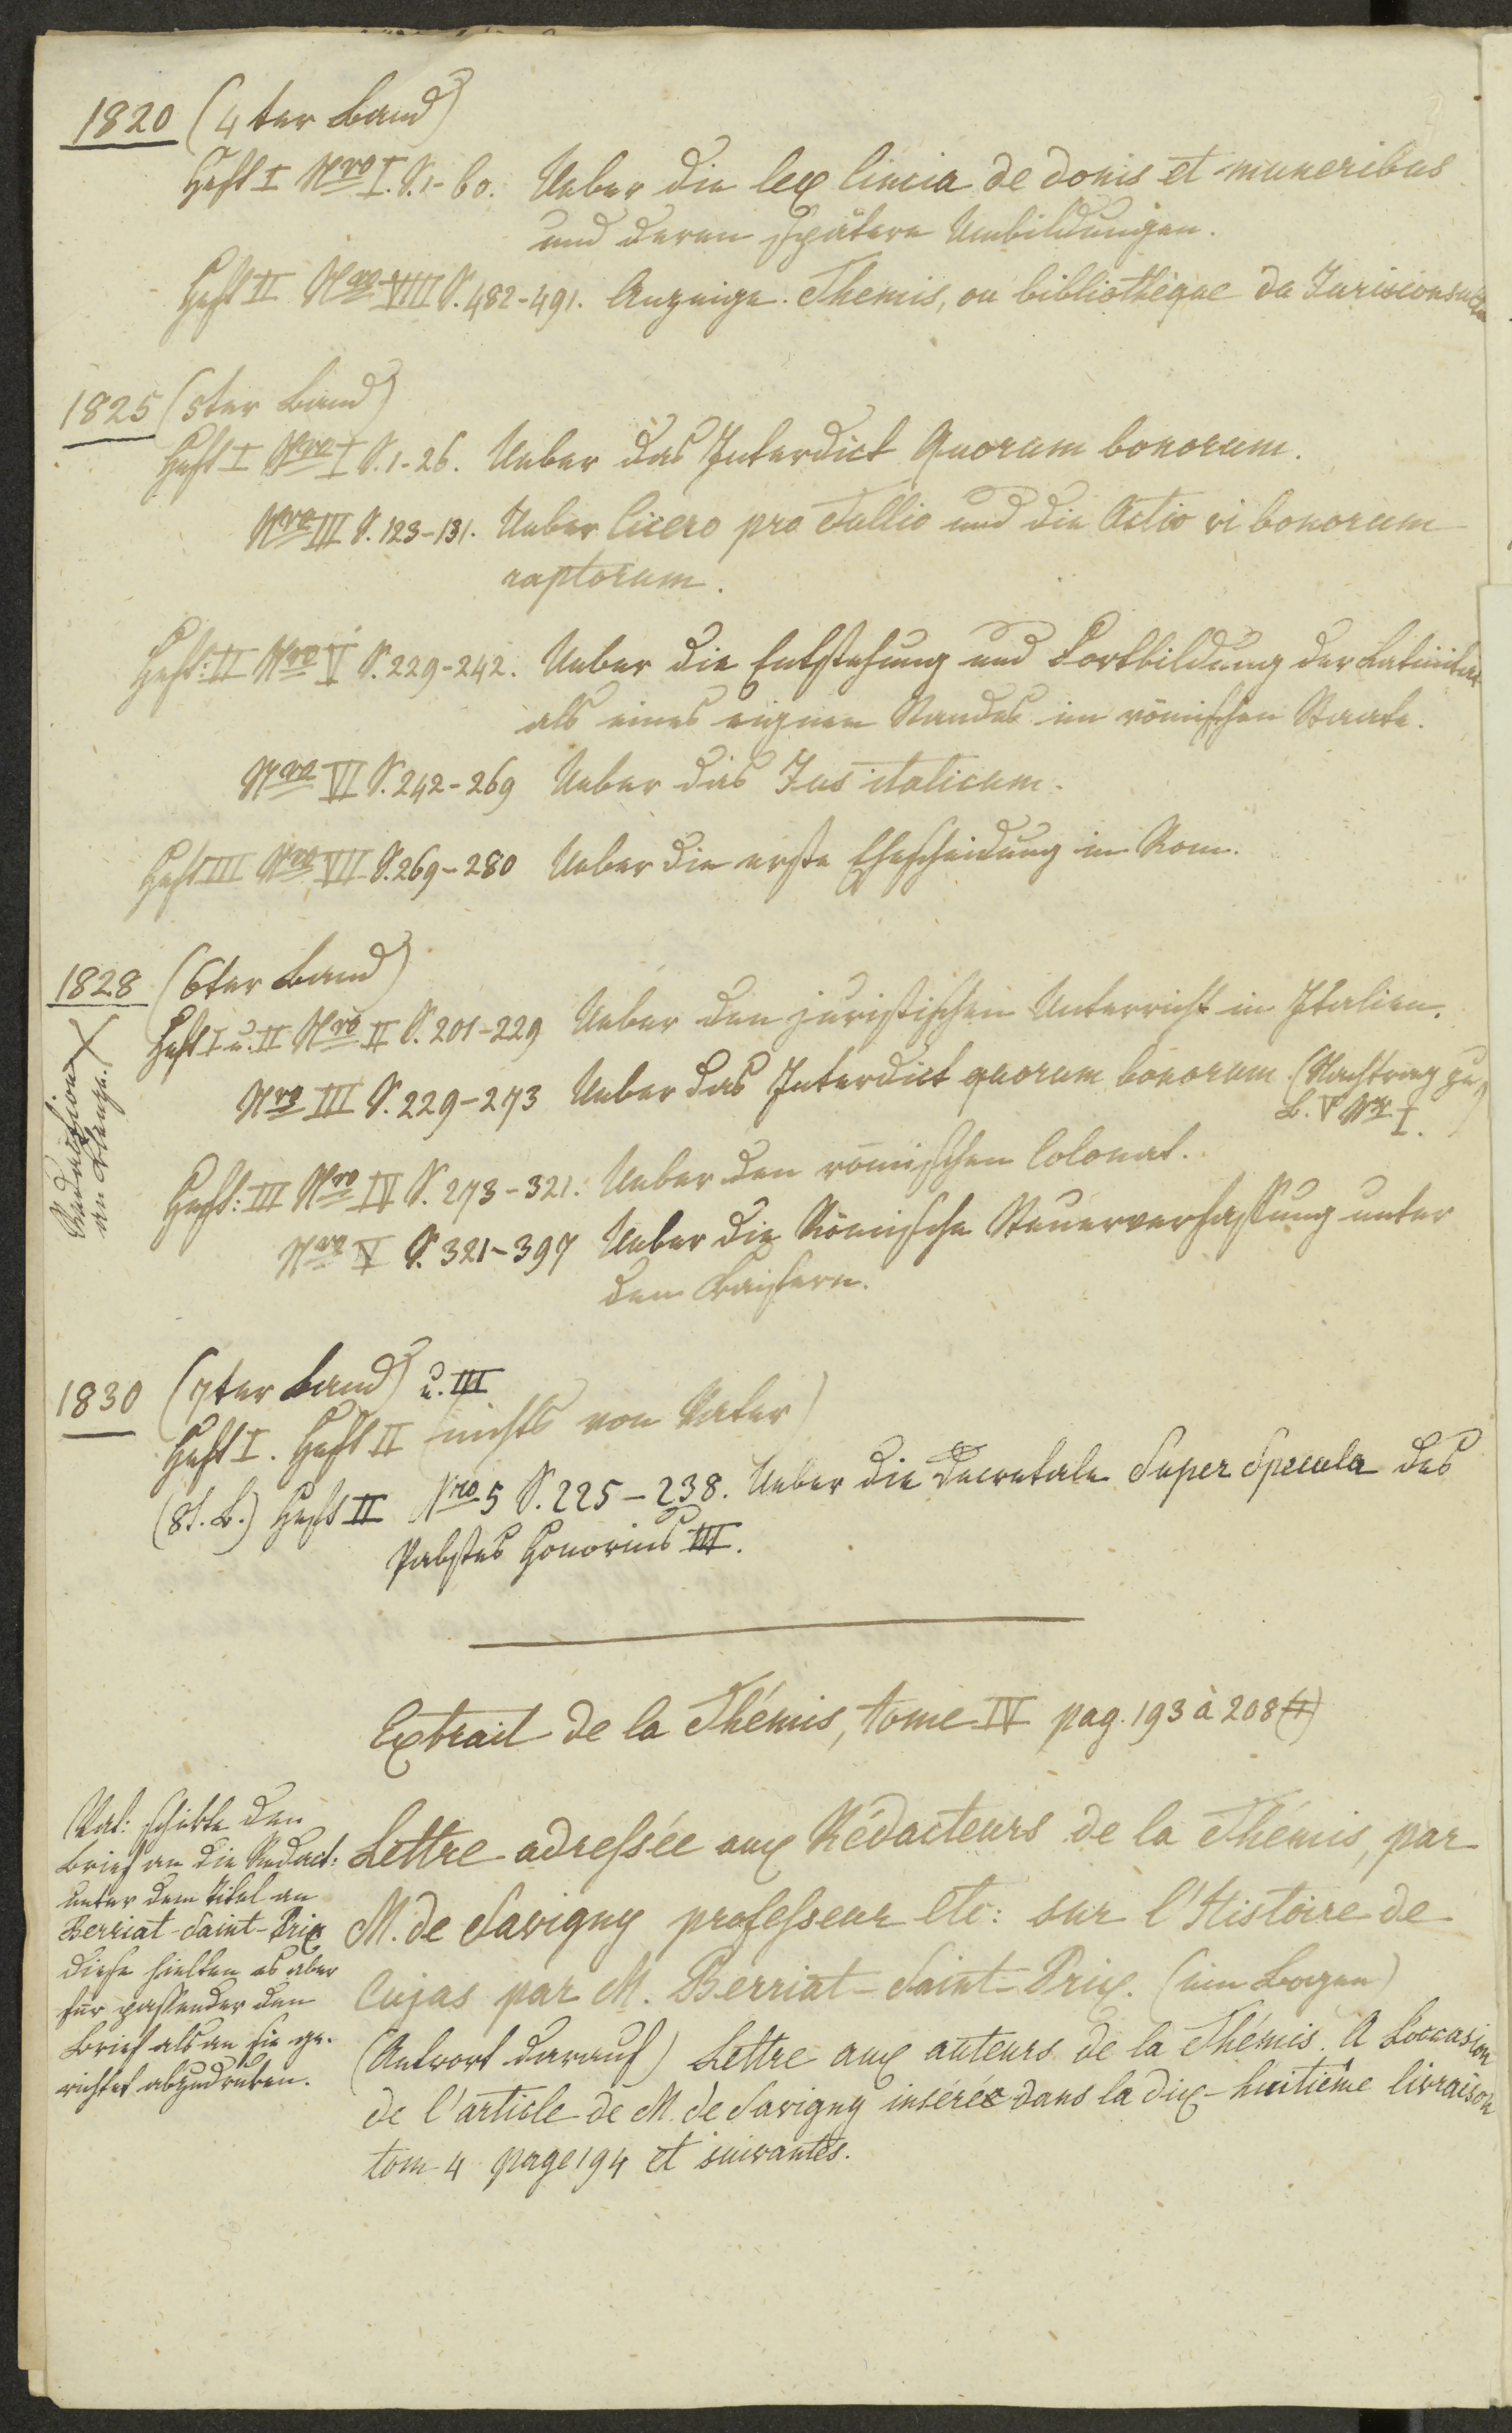 1820 (4ter Band)
Heft I Nro I. S. 1-60. Ueber die lex Cincia de donis et muneribus
und deren spätere Umbildungen.
Heft II Nro VIII S. 482-491. Anzeige. Themis, ou bibliothèque du Jurisconsulte
1825 (5ter Band)
Heft I Nro I S. 1-26. Ueber das Interdict Quorum bonorum.
Nro III S. 123-131. Ueber Cicero pro Tullio und die Actio vi bonorum
raptorum.
Heft: II Nro V S. 229-242. Ueber die Entstehung und Fortbildung der Latinität
als eines eignen Standes im römischen Staate.
Nro VI S. 242-269 Ueber das Jus italicum.
Heft III Nro VII S. 269-280 Ueber die erste Ehescheidung in Rom.
1828 (6ter Band)
Heft I u. II Nro II S. 201-229 Ueber den juristischen Unterricht in Italien.
Nro III S. 229-273 Ueber das Interdict quorum bonorum. (Nachtrag zu
B. V Nr I.)
Heft: III Nro IV S. 273-321. Ueber den römischen Colonat.
Nro V S. 321-397 Ueber die Römische Steuerverfassung unter
den Kaisern.
(Redaktion
an Klenze.)
1830 (7ter Band) u. III
Heft I. Heft II (nichts von Vater)
(8t. B.) Heft II Nro 5 S. 225-238. Ueber die Decretale Super Specula des
Pabstes Honorius III.
Extrait de la Thémis, tome IV pag. 193 à 208 (1)
Lettre adressée aux Rédacteurs de la Thémis, par
M. de Savigny professeur etc: sur l'Histoire de
Cujas par M. Berriat-Saint-Prix. (ein Bogen)
(Antwort darauf) Lettre aux auteurs de la Thémis. A L'occasion
de l'article de M. de Savigny inséré dans la dix-huitième livraison
tom 4 page 194 et suivantes.
Vat: schikte den
Brief an die Redact:
unter dem Titel an
Berriat-Saint-Prix
diese hielten es aber
für passender den
Brief als an sie ge-
richtet abzudruken.